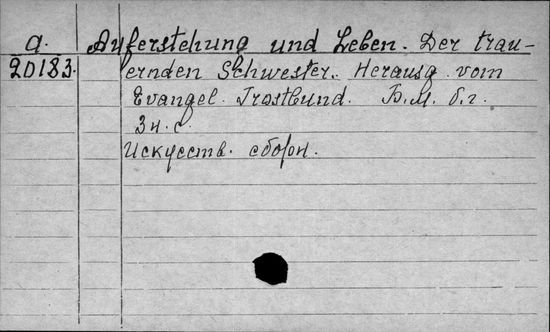 a. Auferstehung und Leben. Der trau-
20183. ernden Schwester. Herausg. vom
Evangel. Trostbund. Б.м. б.г.
3 н. с.
Искусств. сборн.